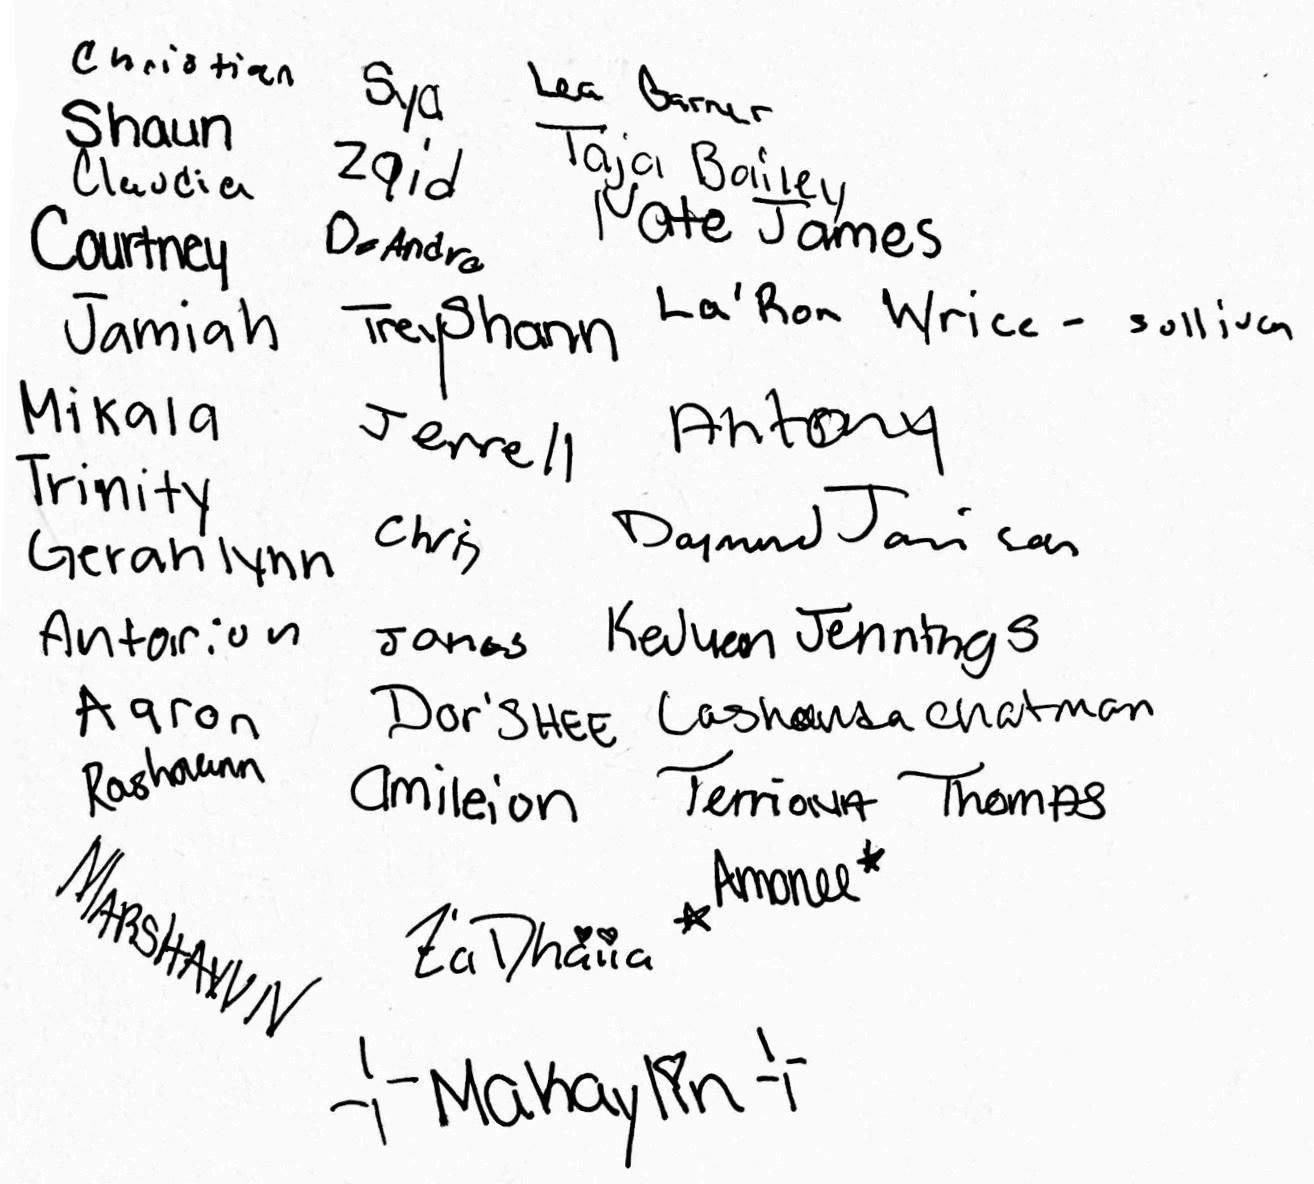 Christian
Shaun
Claudia
Courtney
Jamiah
Mikala
Trinity
Gerahlynn
Antorion
Aaron
Rashaunn
MARSHAVVN
Sya
Zaid
DeAndra
TreyShann
Jerrell
Chris
Jonas
Dor'SHEE
Amileion
Za'Dhaiia
Lea Garner
Taja Bailey
Nate James
La'Ron Wrice - Sullivan
Antony
Jennings
Chatman
TerrioNA ThomAS
Amonee*
Mahaylin